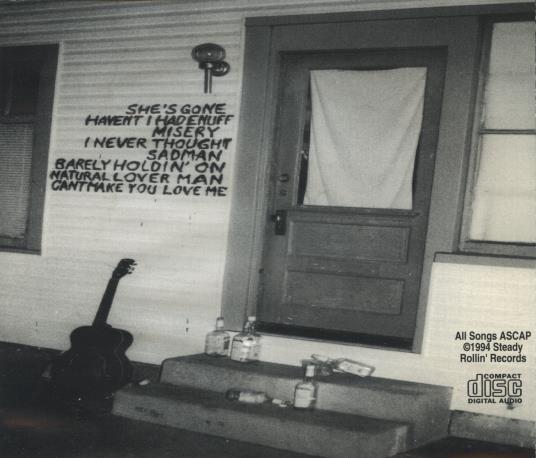 SHE'S GONE
HAVENT I HAD ENUFF
MISERY
I NEVER THOUGHT
SADMAN
BARELY HOLDIN' ON
NATURAL LOVER MAN
CANT MAKE YOU LOVE ME
All Songs ASCAP
©1994 Steady
Rollin' Records
COMPACT
disc
DIGITAL AUDIO